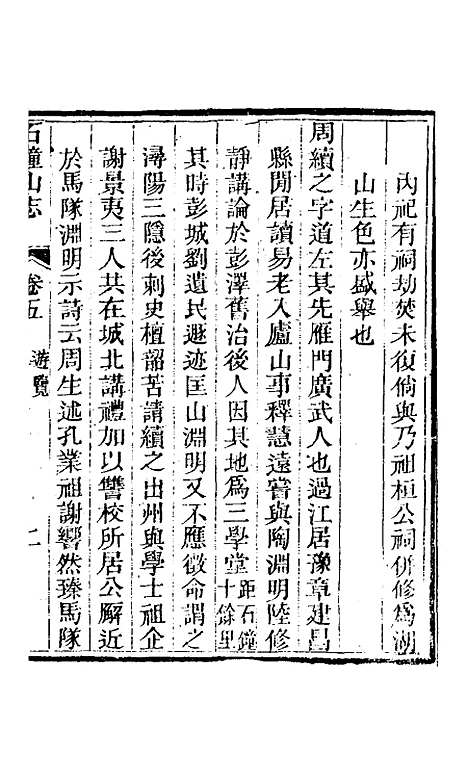 內祀有祠劫焚未復倘與乃祖桓公祠併修為湖
山生色亦盛舉也
周續之字道左其先雁門廣武人也過江居豫章建昌
縣閒居讀易老入廬山事釋慧遠嘗與陶淵明陸修
靜講論於彭澤舊治後人因其地為三學堂距石鐘十餘里
其時彭城劉遺民遯迹匡山淵明又不應徵命謂之
潯陽三隱後刺史檀韶苦請續之出州與學士祖企
謝景夷三人共在城北講禮加以讐校所居公廨近
於馬隊淵明示詩云周生述孔業祖謝響然臻馬隊
石鐘山志 卷五 遊覽